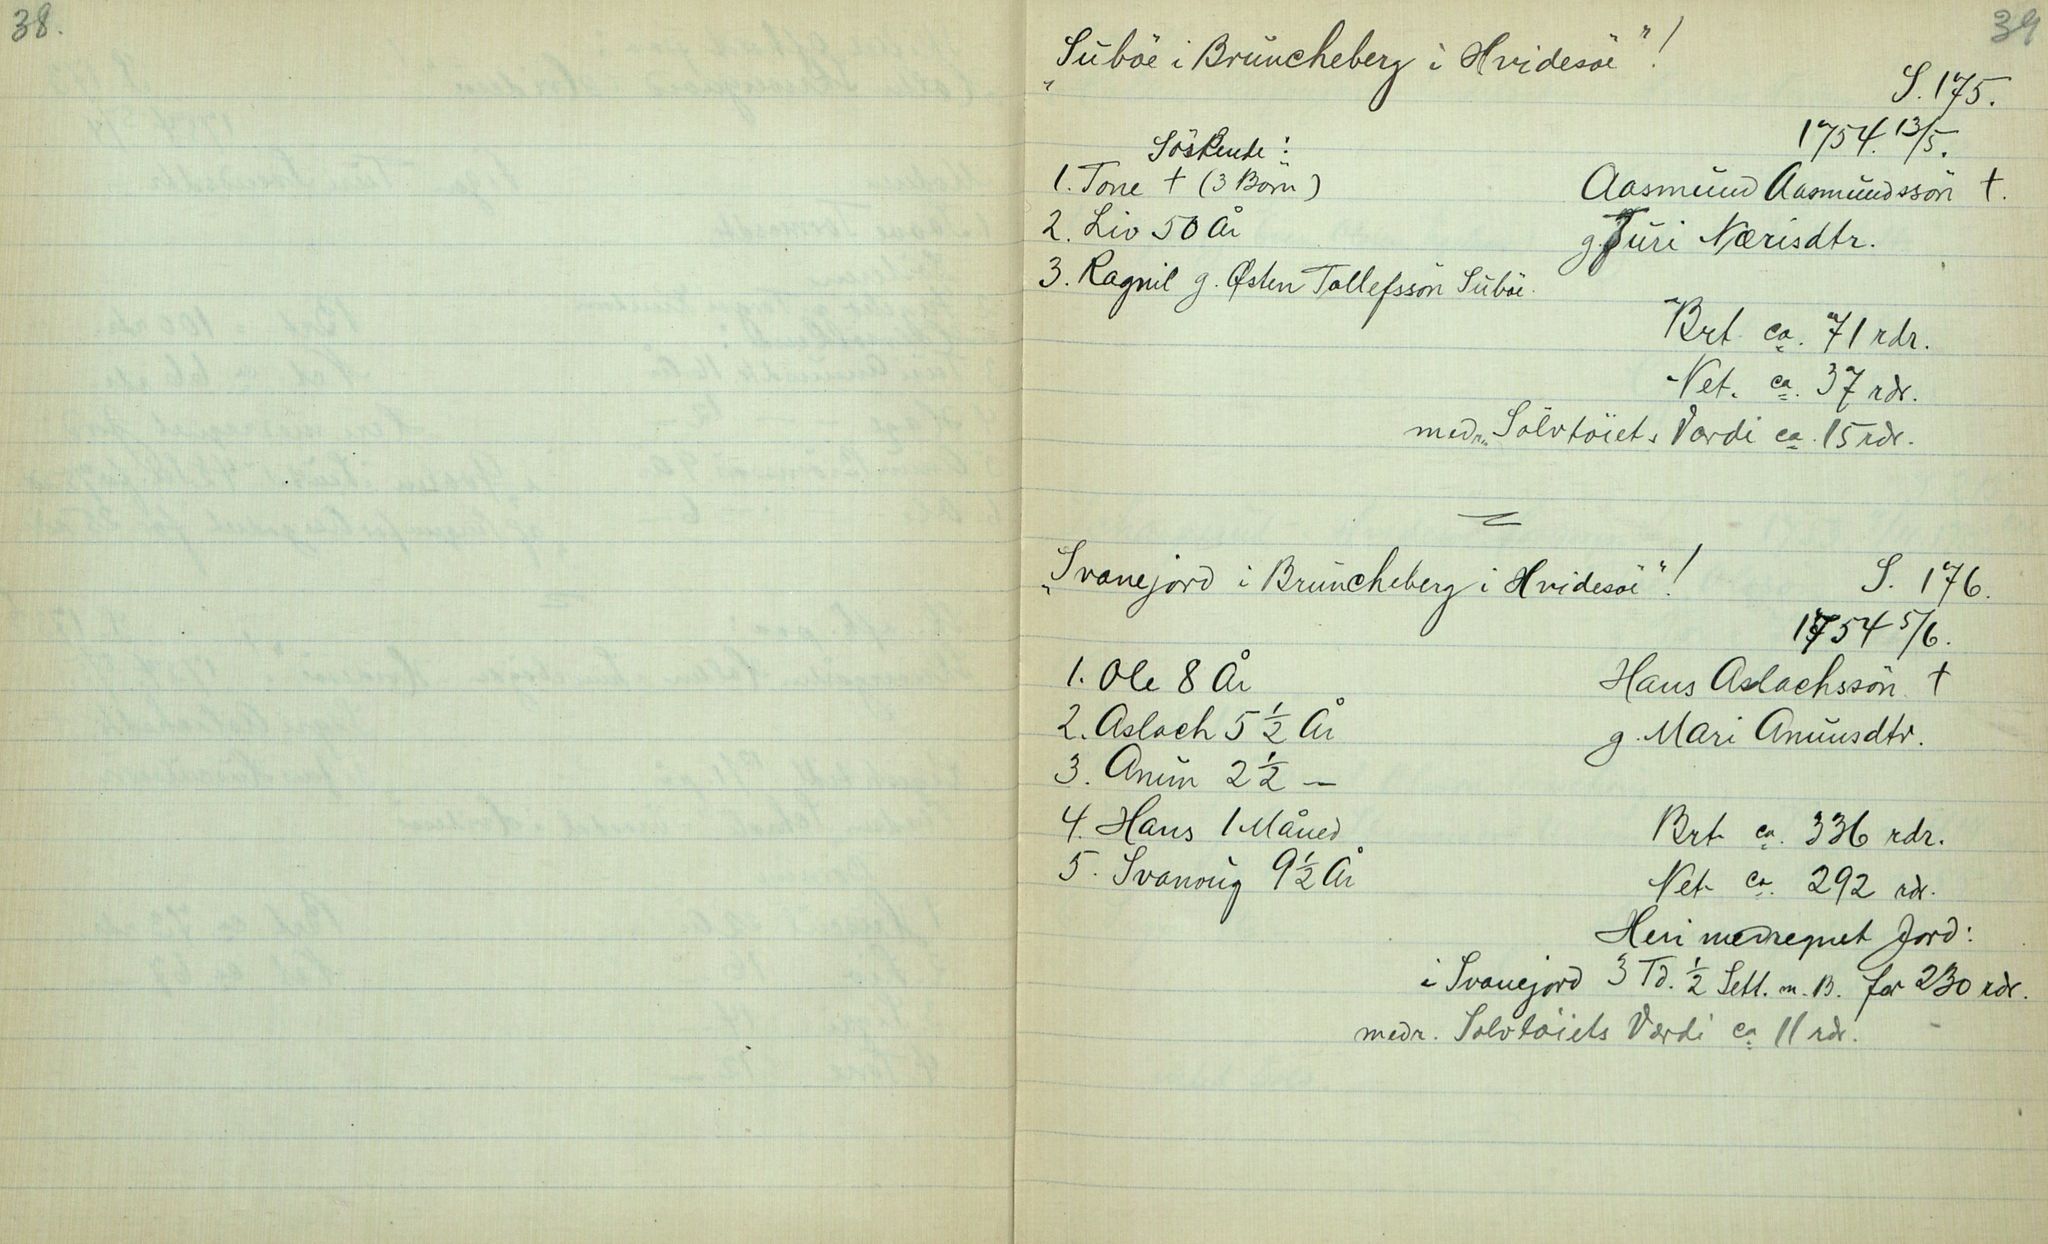 38.
39
"Suböe i Bruncheberg i Hvidesöe"!
S. 175.
1754. 13/5.
Söskende:
1. Tone † (3 Börn)
Aasmund Aasmundssön †.
2. Liv 50 År
g. Turi Nærisdtr.
3. Ragnil g. Østen Tollefssön Suböe.
Brt. ca. 71 rdr.
Net. ca. 37 rdr.
medr. Sölvtöiets Værdi ca. 15 rdr.
"Svanejord i Bruncheberg i Hvidesöe"!
S. 176.
1754 5/6.
1. Ole 8 År
Hans Aslachssön †
2. Aslach 5 1/2 År
g. Mari Anunsdtr.
3. Anun 2 1/2 —
4. Hans 1 Måned
Brt. ca. 336 rdr.
5. Svanoug 9 1/2 År
Net. ca. 292 rdr.
Heri medregnet Jord:
i Svanejord 3 Td. 1/2 Sett. m. B. for 230 rdr.
medr. Solvtöiets Værdi ca 11 rdr.